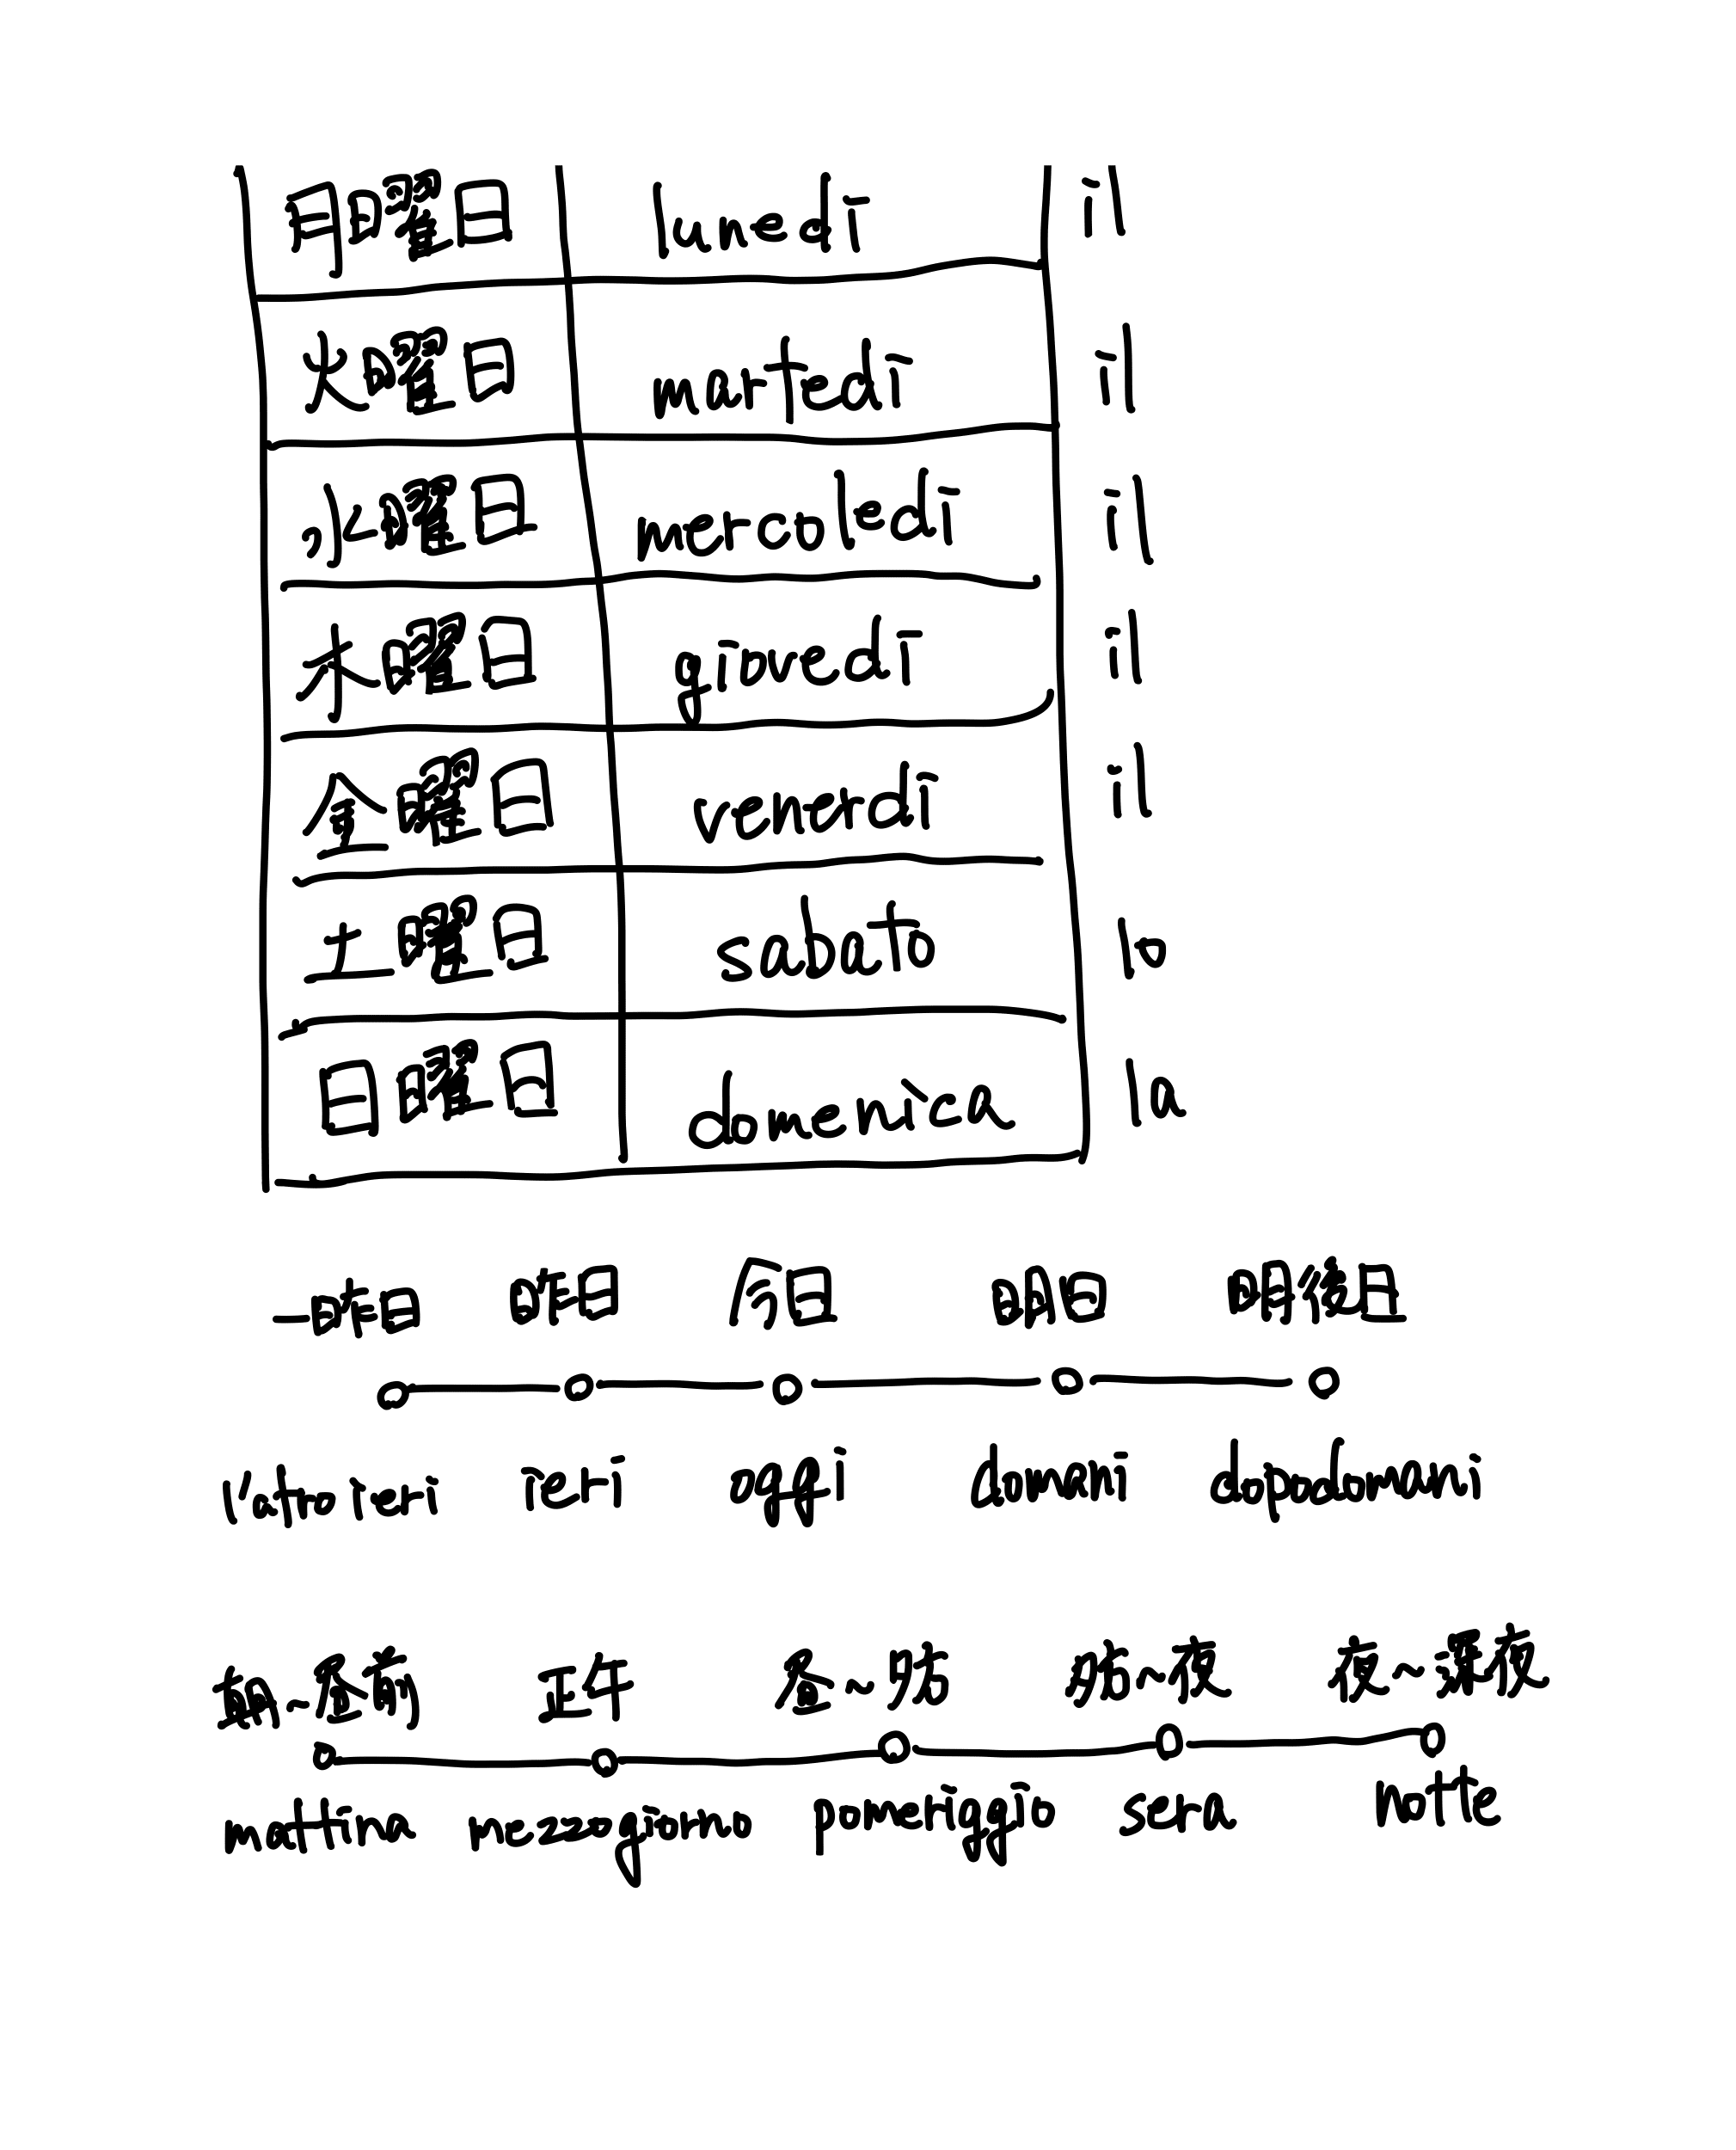 月曜日 lunedi il
火曜日 martedi il
水曜日 mercoledi il
木曜日 giovedi il
金曜日 venerdi il
土曜日 sabato lo
日曜日 domenica la
一昨日 昨日 今日 明日 明後日
l'atro ieri ieri oggi domani dopodomani
朝~昼前 正午 昼~夕方 夕方~夜 夜~深夜
mattina mezzogiorno pomeriggio sera notte